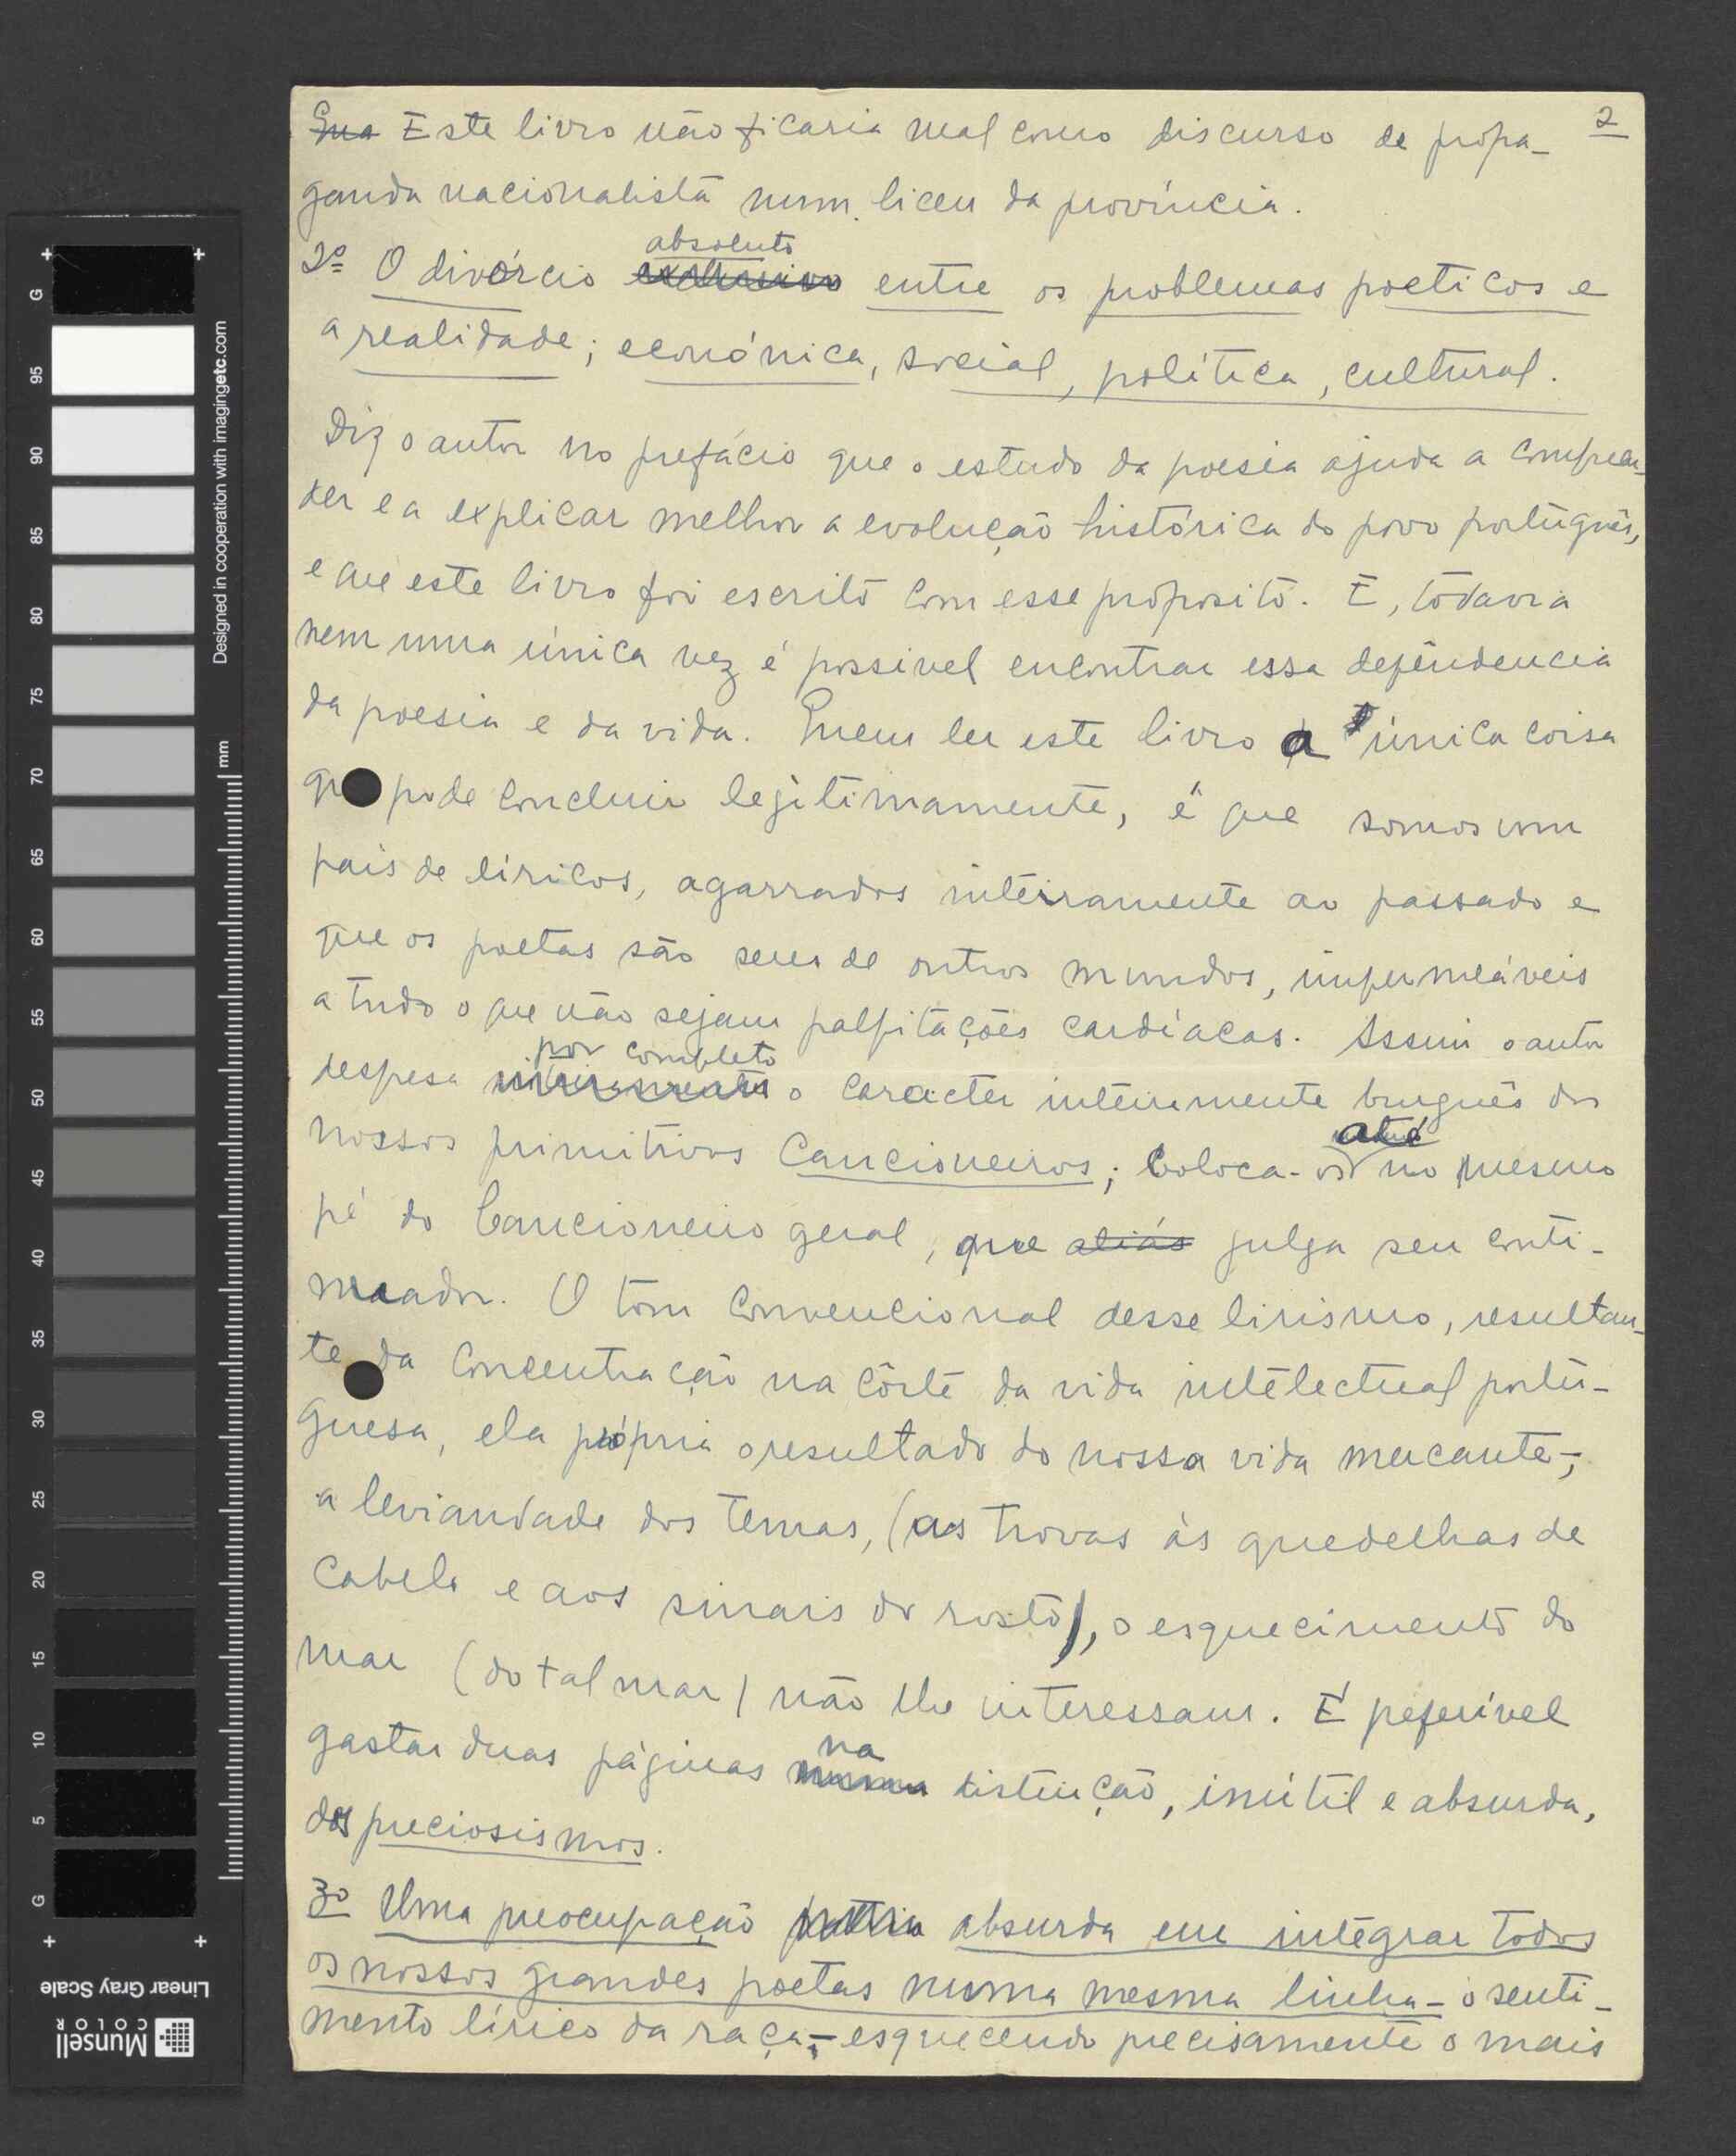 2
Sua Este livro não ficaria mal como discurso de propa-
ganda nacionalista num liceu da província.
absoluto
2º O divórcio exclusivo entre os problemas poeticos e
a realidade; económica, social, política, cultural.
Diz o autor no prefácio que o estudo da poesia ajuda a compreen-
der e a explicar melhor a evolução histórica do povo português,
e que este livro foi escrito com esse proposito. E, todavia
nem uma única vez é possivel encontrar essa dependencia
da poesia e da vida. Quem ler este livro a única coisa
que pode concluir legitimamente, é que somos um
país de líricos, agarrados inteiramente ao passado e
que os poetas são seres de outros mundos, impermeáveis
a tudo o que não sejam palpitações cardíacas. Assim o autor
por completo
despesa inteiramente o caracter inteiramente burguês dos
até
nossos primitivos Cancioneiros; coloca-os no mesmo
pé do Cancioneiro geral, que aliás julga seu conti-
nuador. O tom convencional desse lirismo, resultan-
te da concentração na côrte da vida intelectual portu-
guesa, ela própria o resultado do nossa vida mercante-;
a leviandade dos temas, (as trovas às guedelhas de
cabelo e aos sinais do rosto), o esquecimento do
mar (do tal mar) não lhe interessam. É preferível
na
gastar duas páginas numa distinção, inútil e absurda,
dos preciosismos.
3º Uma preocupação absurda em integrar todos
os nossos grandes poetas numa mesma linha - o senti-
mento lírico da raça, - esquecendo precisamente o mais
G 95 90 85 80 75 70 65 60 55 50 45 40 35 30 25 20 15 10 5 G
Designed in cooperation with imagingetc.com
mm
Linear Gray Scale
Munsell
COLOR